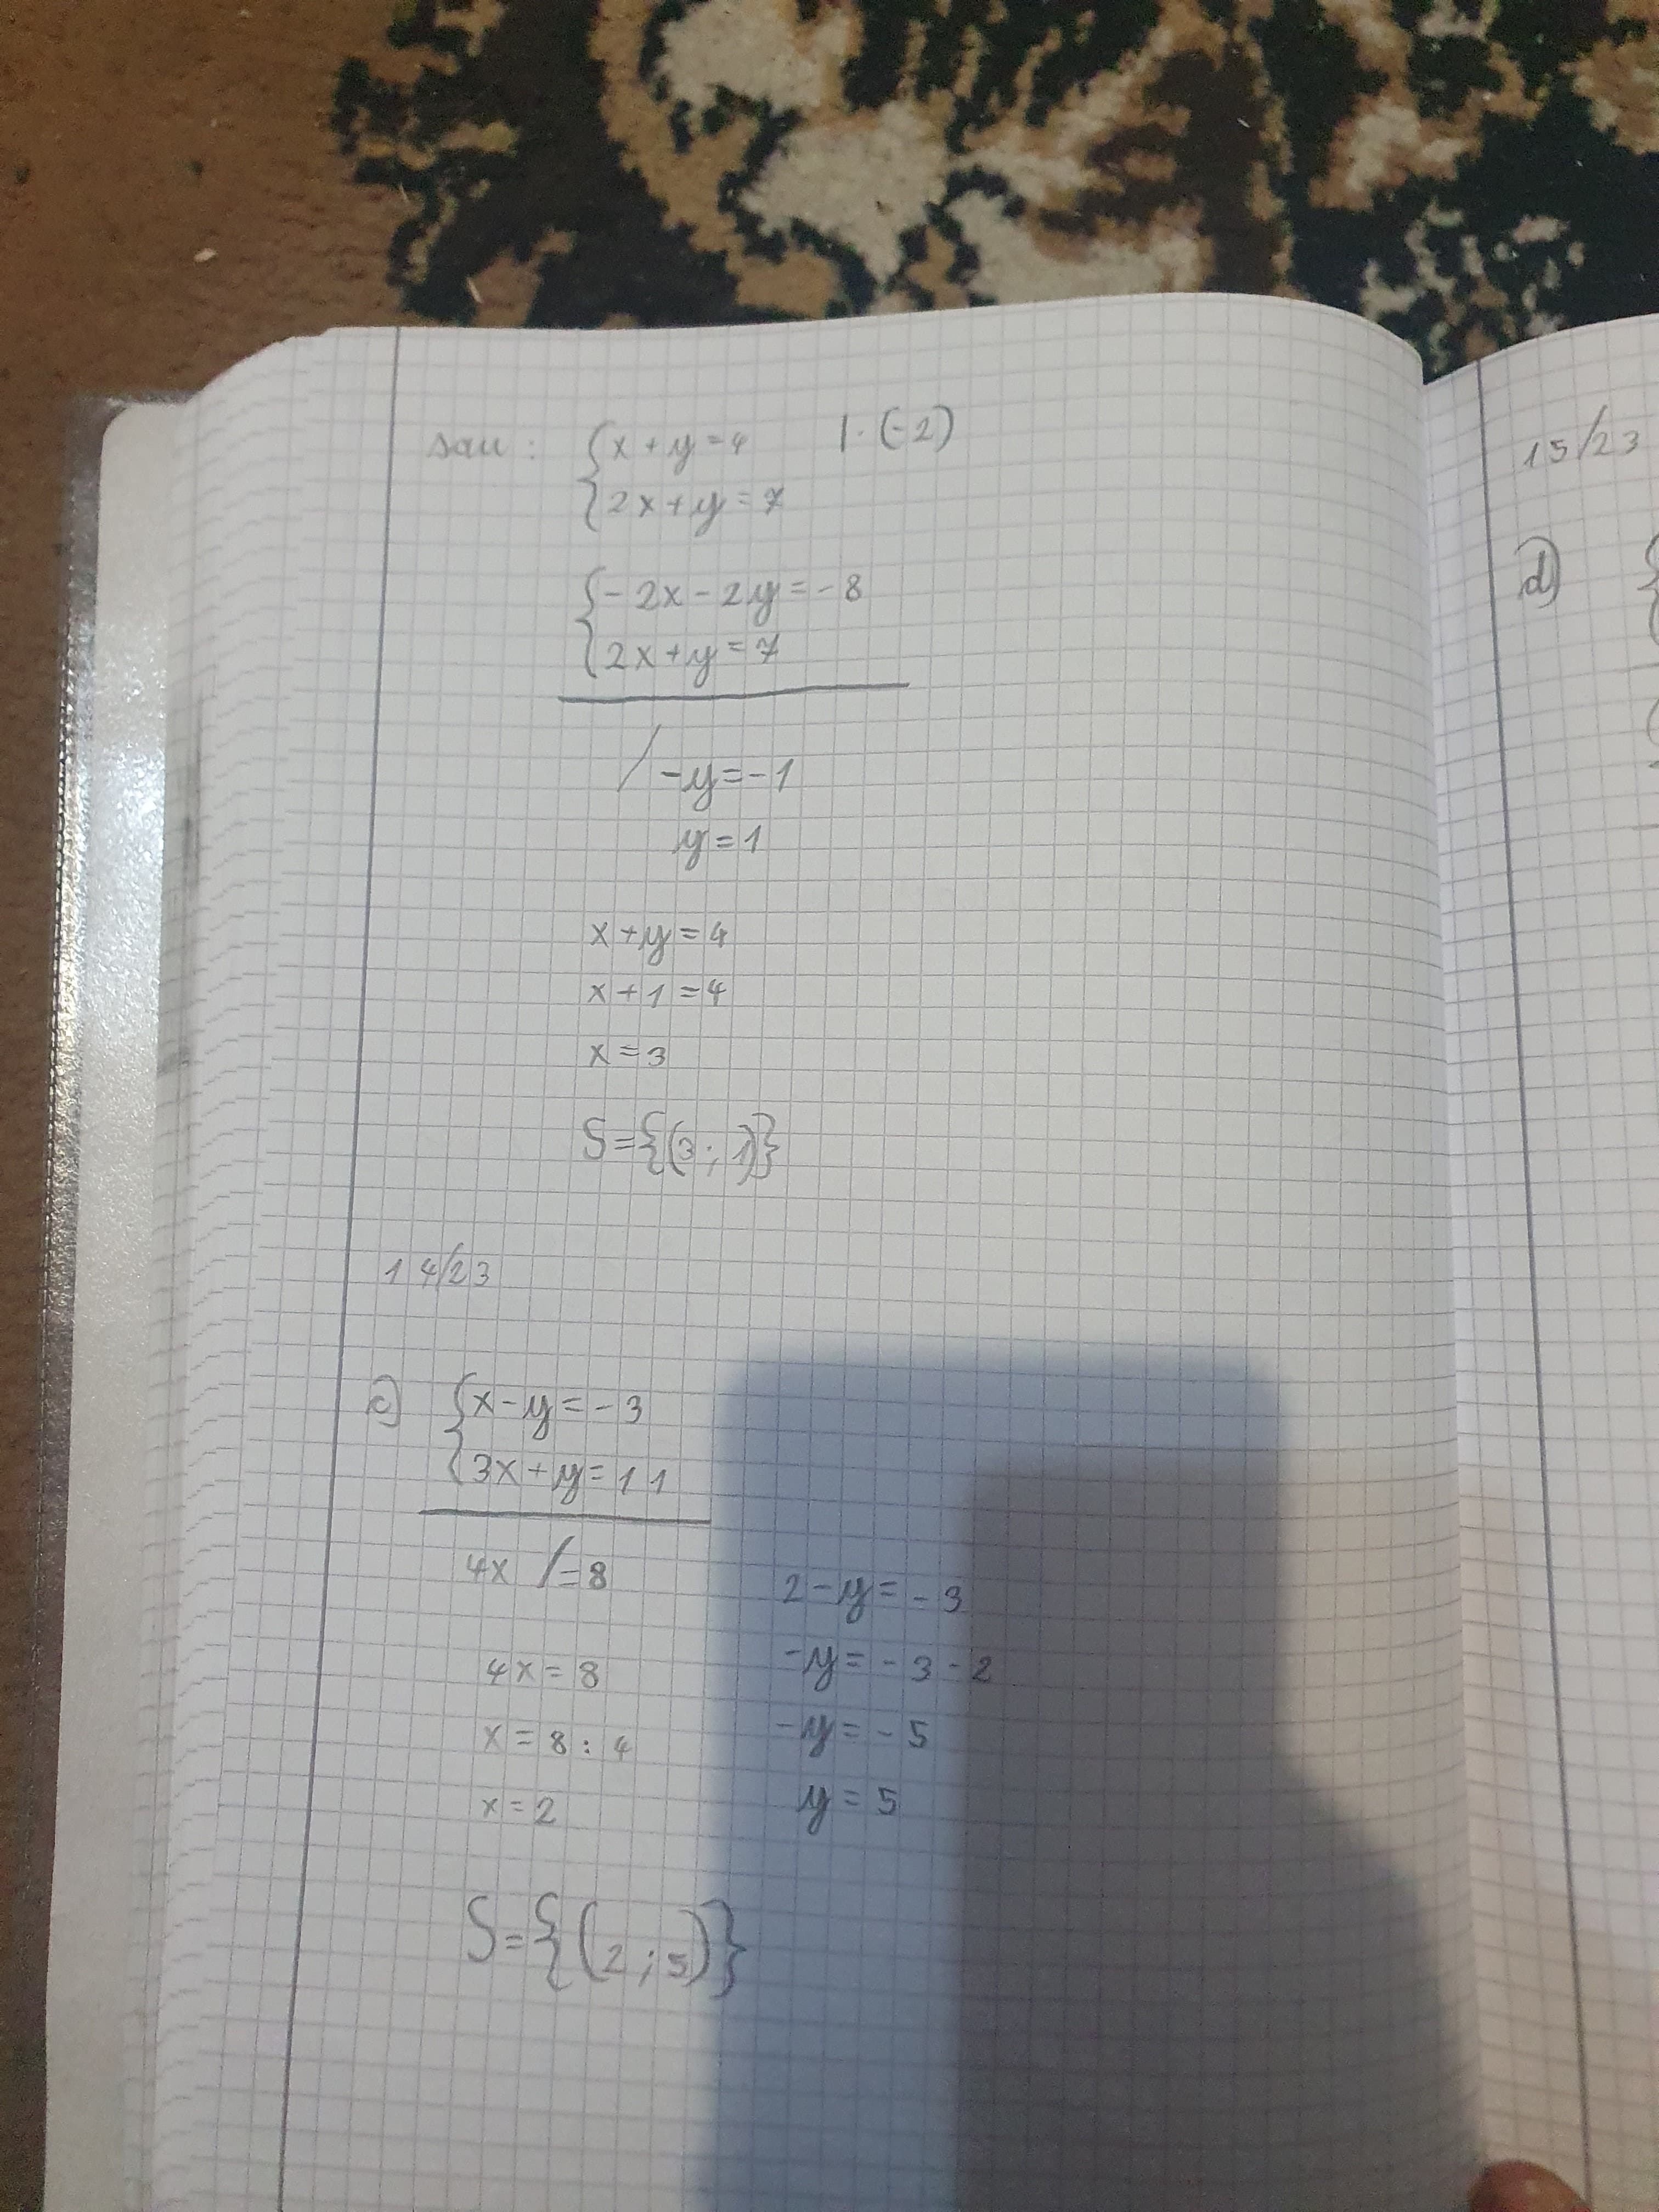 sau: { x + y = 4 | · (-2)
{ 2x + y = 7
{ - 2x - 2y = - 8
{ 2x + y = 7
/ - y = - 1
y = 1
x + y = 4
x + 1 = 4
x = 3
S = {(3 ; 1)}
14/23
c) { x - y = - 3
{ 3x + y = 11
4x / = 8
4x = 8
x = 8 : 4
x = 2
2 - y = - 3
- y = - 3 - 2
- y = - 5
y = 5
S = {(2 ; 5)}
15/23
d) {